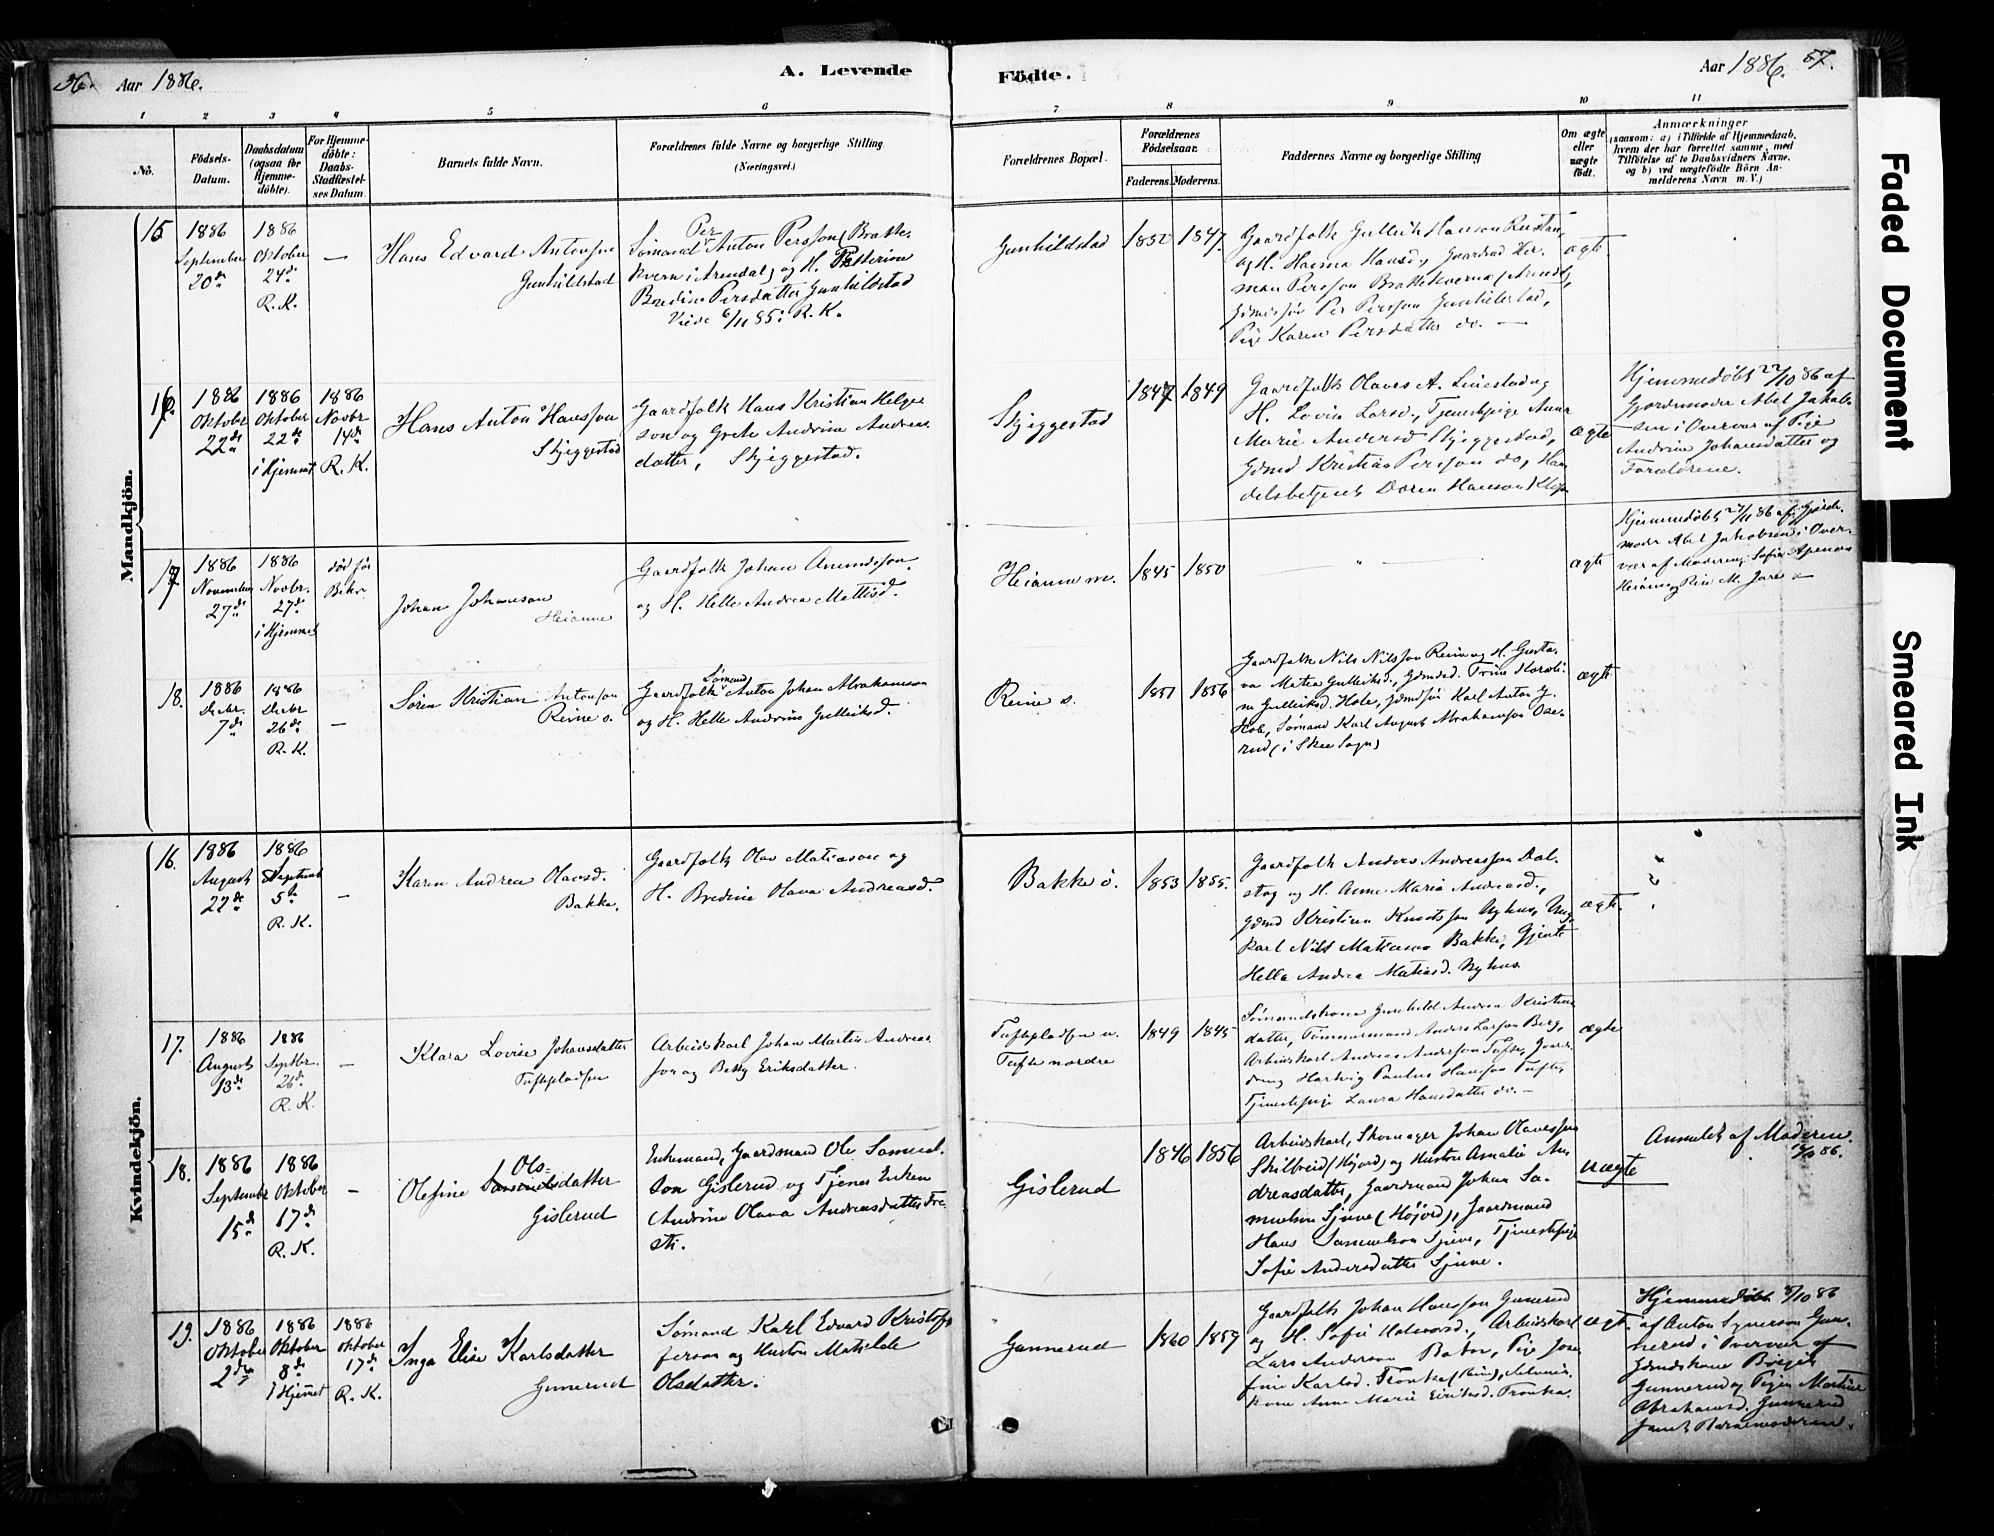 56. Aar 1886. A. Levende
Födte. Aar 1886. 57.
1 2 3 4 5 6
7 8 9 10 11
No.
Födsels-
Datum.
Daabsdatum
(ogsaa for
Hjemme-
döbte).
For Hjemme-
döbte:
Daabs-
Stadfæstel-
ses Datum
Barnets fulde Navn.
Forældrenes fulde Navne og borgerlige Stilling
(Næringsvei.)
Forældrenes Bopæl.
Forældrenes
Födselsaar.
Faderens. Moderens.
Faddernes Navne og borgerlige Stilling
Om ægte
eller
uægte
födt.
Anmærkninger
(saasom: a) i Tilfælde af Hjemmedaab,
hvem der har forrettet samme, med
Tilföielse af to Daabsvidners Navne,
og b) ved uægtefödte Börn An-
melderens Navn m. V.)
Mandkjön.
15.
1886
September
20de
1886
Oktober
24de
R. K.
—
Hans Edvard Antonsson
Gunhildstad
Per
Sømand Anton Persson (Brække-
kvern i Arendal) og H.
Bredine Persdatter Gunhildstad
Viede 6/11 85 i R. K.
Gunhildstad
1850 1847.
Gaardfolk Gullik Hanson
og H. Hanna Hansd., Gaardmd Her-
man Persson
Per Persson Gunhildstad,
Pige Karen Persdatter do. —
ægte
16.
1886
Oktober
22de
1886
Oktober
22de
i Hjemmet
1886
Novbr
14de
R. K.
Hans Anton Hansson
Skjeggestad
Gaardfolk Hans Kristian Helge-
son og Grete Andrine Andreas-
datter, Skjeggestad.
Skjeggestad
1847 1849
Gaardfolk Olaves A. Linestad og
H. Lovise Larsd., Tjenestepige Anne
Marie Andersd Skjeggestad,
Gdmd Kristian Persson do, Han-
delsbetjent Doren Hanson
ægte
Hjemmedöbt 22/10 86 af
Gjordemoder Abel Jakob-
sen i Overvær af Pige
Andrine Johansdatter og
Forældrene.
17
1886
November
27de
1886
Novbr.
27de
i Hjemmet
död før
Bekr
Johan Johanson
Heianne
Gaardfolk Johan Amundsson
og H. Helle Andrea Mattisd.
Heianne m.
1845 1850
— " —
ægte
Hjemmedöbt 27/11 86 af Gjorde-
moder Abel Jakobsen i Over-
vær af Moderen, Sofie
18.
1886
Decbr.
7de
1886
Decbr
26de
R. K.
—
Sören Kristian Antonson
Reine s.
Sømand
Gaardfolk Anton Johan Abrahamson
og H. Helle Andrine Gulliksd.
Reine s.
1851 1856
Gaardfolk Nils Nilsson Reine og H. Gusta-
va Matea Gulliksd., Gdmdsd. Trine Karoli-
ne Gulliksd. Hole, Gdmdsøn Karl Anton G.
Hole, Sømand Karl August Abrahamson Aae-
rud (i Skee Sogn)
ægte
Kvindekjön.
16.
1886
August
22de
1886
Septemb
5te
R. K.
—
Karen Andrea Olavsd.
Bakke.
Gaardfolk Olav Matiason og
H. Bredine Olava Andreasd.
Bakke ö.
1853 1855.
Gaardfolk Anders Andreasson Dal-
stog og H. Anne Maria Andreasd.,
Gdmd Kristian Knutsson Nyhus, Ung-
karl Nils Matiason Bakke, Gjente
Helle Andrea Matiasd. Nyhus
ægte.
17.
1886
August
13de
1886
Septbr.
26de
R. K.
—
Klara Lovise Johansdatter
Tuftepladsen
Arbeidskarl Johan Martin Andreas-
son og Betty Eriksdatter.
Tuftepladsen u.
Tufte nordre
1849 1845
Sømandskone Gunhild Andrea Kristians-
datter, Tømmermand Anders Larson Berg,
Arbeidskarl Andreas Anderson Tufte, Gaard-
dreng Hartvig Paulus Hansson Tufte,
Tjenestepige Laura Hansdatter do. —
ægte
18.
1886
September
15de
1886
Oktober
17de
R. K.
—
Ols=
Olefine Samuelsdatter
Gislerud
Enkemand, Gaardmand Ole Samuel-
son Gislerud og Tjener Enken
Andrine Olava Andreasdatter Fre-
sti.
Gislerud
1846 1856
Arbeidskarl, Skomager Johan Olavesson
Skilbreid (Höjord) og Hustru Amalie An-
dreasdatter, Gaardmand Johan Sa-
muelson Sjuve (Höjord), Gaardmand
Hans Samuelson Sjuve, Tjenestepige
Sofie Andersdatter Sjuve.
uægte
Anmeldt af Moderen
86.
19.
1886
Oktober
2den
1886
Oktober
8de
i Hjemmet
1886
Oktober
17de
R. K.
Inga Elise Karlsdatter
Gunnerud
Sømand Karl Edvard Kristof-
ferson og Hustru Matilde
Olsdatter.
Gunnerud
1860 1859
Gaardfolk Johan Hansson Gunnerud
og H. Sofie Halvorsd., Arbeidskarl
Lars Anderson Pige Jose-
fine Karlsd. Tronka (Ruin),
kone Anne Marie Eriksd. Tronka.
ægte
Hjemmedöbt 8/10 86
af Anton Synerson Gun-
nerud i Overvær af
Gdmdskone
Gunnerud og Pigen Martine
Abrahamsd. Gunnerud
samt Barnemoderen.
Faded Document
Smeared Ink